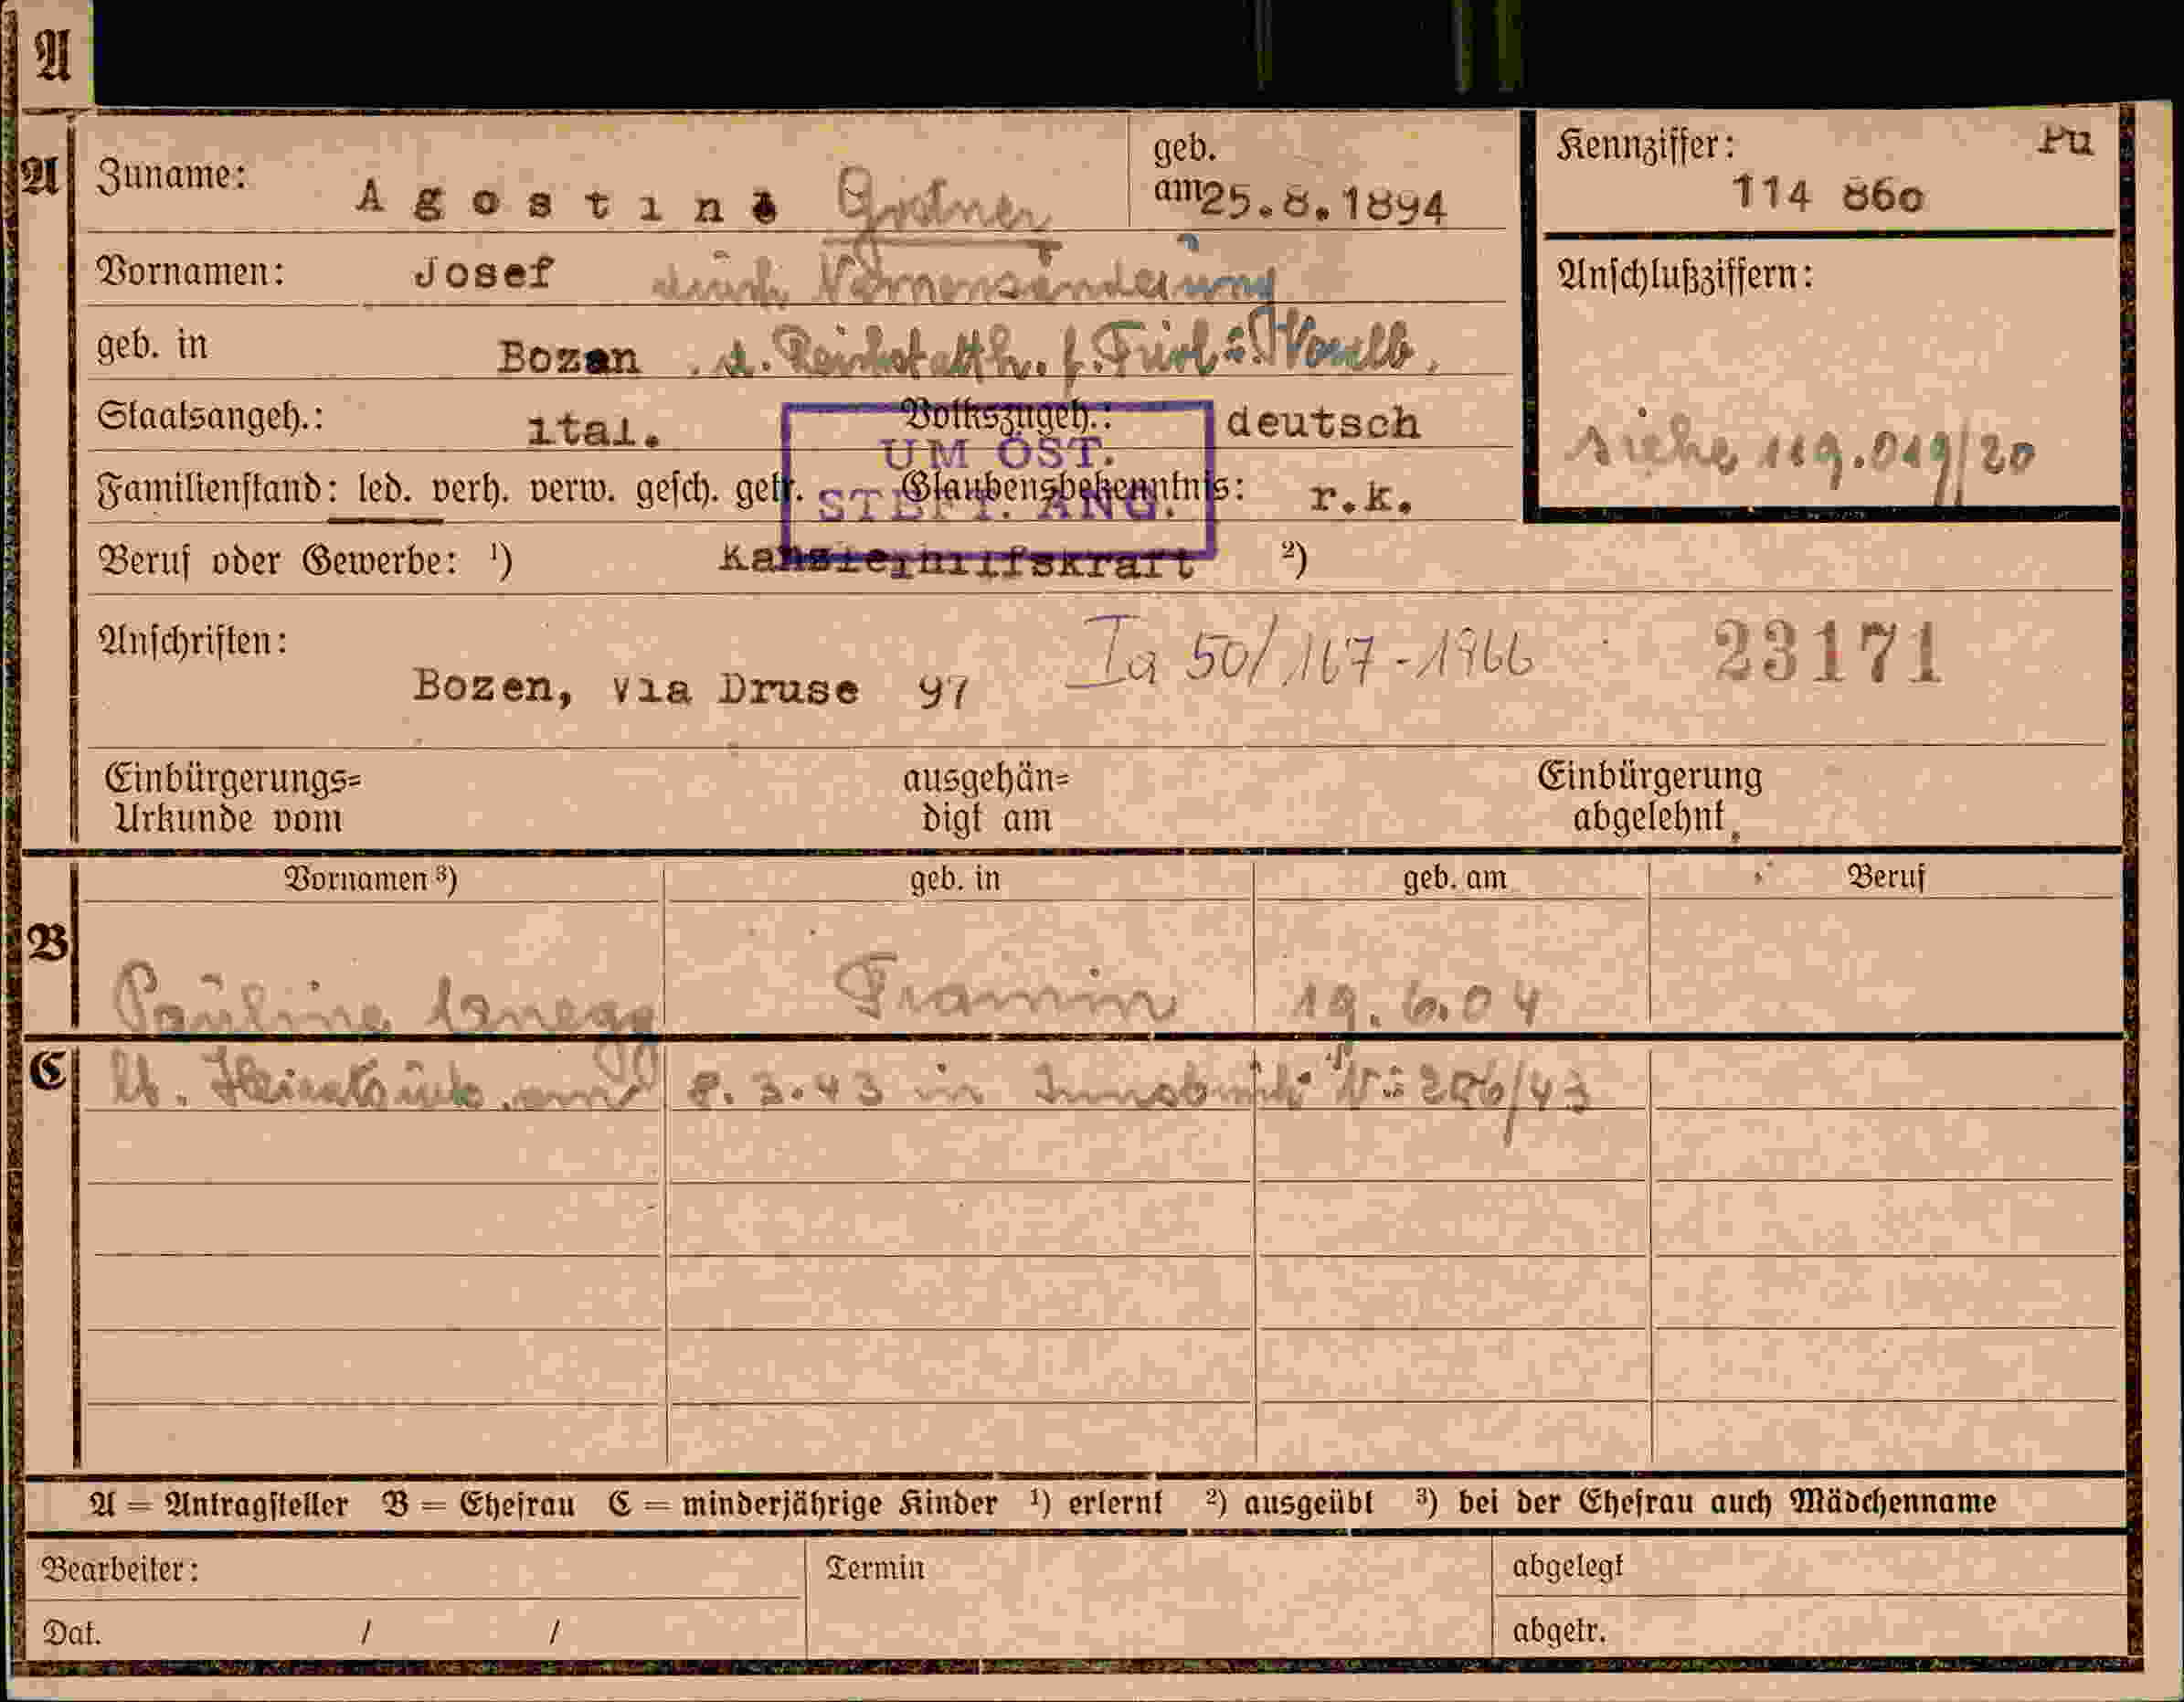 A
A Zuname: Agostina Grstner geb. am 25.8.1894 Kennziffer: Pu 114 860
Vornamen: Josef durch Namensänderung Anschlußziffern:
geb. in Bozen d. Reichstatth. f. Tirol u. Vorarlb.
Staatsangeh.: ital. Volkszugeh.: deutsch
UM ÖST.
siehe 119.019/20
Familienstand: led. verh. verw. gesch. getr. Glaubensbekenntnis: r.k.
ST ANG.
Beruf oder Gewerbe: ¹) Kanzleihilfskraft ²)
Anschriften: Ia 50/167-1966 23171
Bozen, via Druse 97
Einbürgerungs= ausgehän= Einbürgerung
Urkunde vom digt am abgelehnt
Vornamen ³) geb. in geb. am Beruf
B Pauline Tramin 19.6.04
C lt. Heiratsurk. am 8.3.43 in Innsbruck
A = Antragsteller B = Ehefrau C = minderjährige Kinder ¹) erlernt ²) ausgeübt ³) bei der Ehefrau auch Mädchenname
Bearbeiter: Termin abgelegt
Dat. / / abgetr.